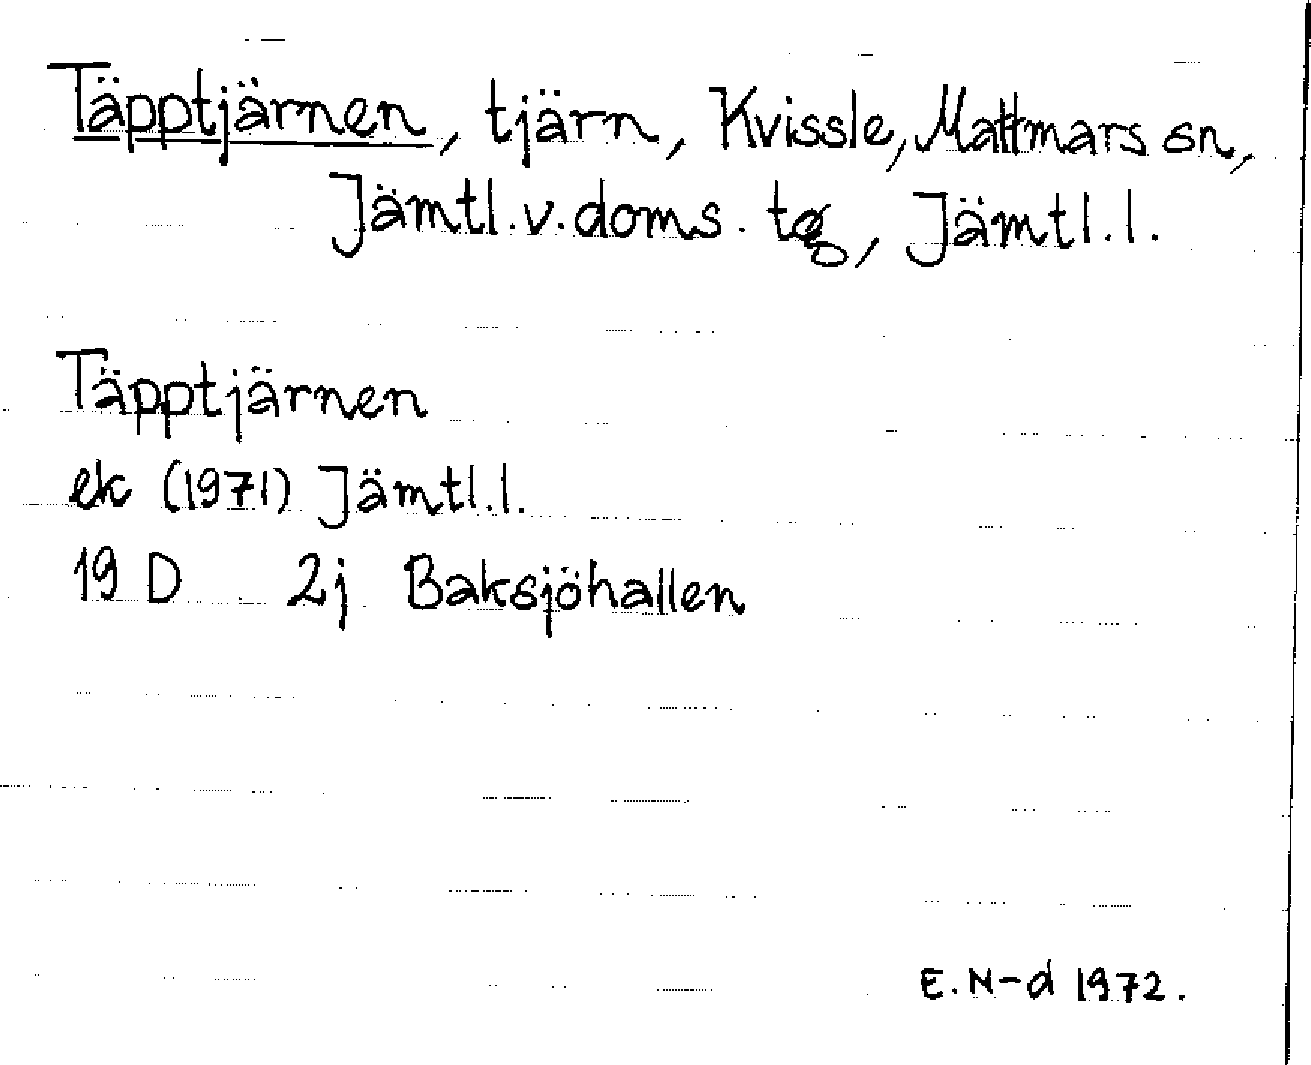 Täpptjärnen, tjärn, Kvissle, Mattmars sn,
Jämtl.v.doms.tg, Jämtl.l.
Täpptjärnen
ek (1971) Jämtl.l.
19 D 2j Baksjöhallen
E.N-d 1972.